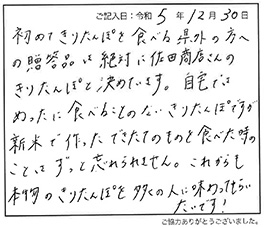 ご記入日：令和 5 年 12 月 30 日
初めてきりたんぽを食べる県外の方へ
の贈答品は絶対に佐田商店さんの
きりたんぽと決めています。自宅では
めったに食べることのないきりたんぽですが
新米で作ったできたてのものを食べた時の
ことはずっと忘れられません。これからも
本物のきりたんぽを多くの人に味わってもらい
たいです!
ご協力ありがとうございました。